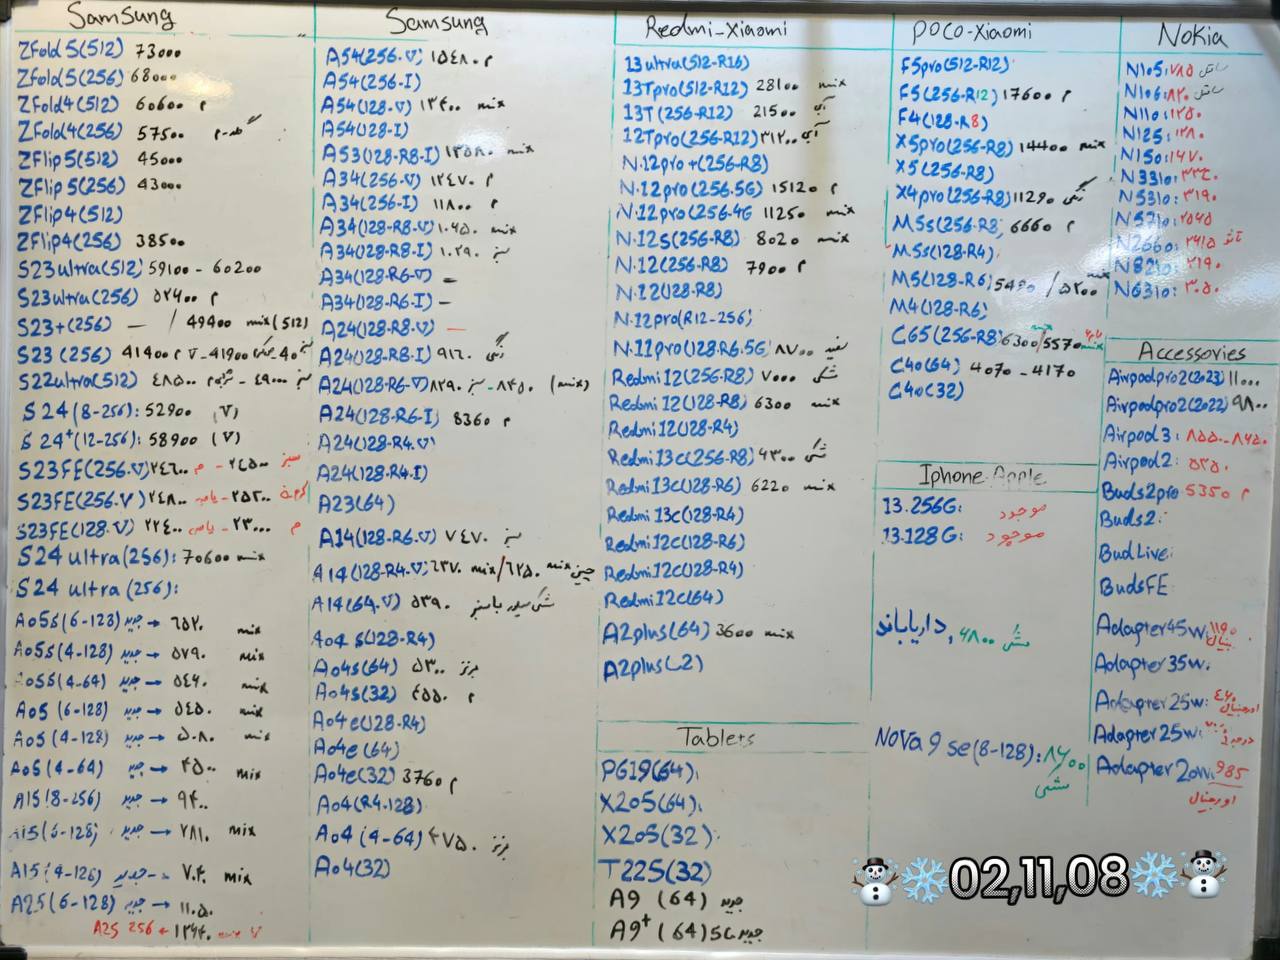 Samsung
ZFold5(512) 73000
ZFold5(256) 68000
ZFold4(512) 60600 م
ZFold4(256) 57500
ZFlip5(512) 45000
ZFlip5(256) 43000
ZFlip4(512)
ZFlip4(256) 38500
S23ultra(512) 59100 - 60200
S23ultra(256) ۵۲۴۰۰ م
S23+(256) — / 49400 mix(512)
S23 (256) 41400
S22ultra(512) ۴۸۵۰۰
S24(8-256): 52900 (V)
S24+(12-256): 58900 (V)
S23FE(256.V) ۲۴۶۰۰
S23FE(256.V) ۲۴۸۰۰
S23FE(128.V) ۲۲۴۰۰
S24 ultra(256): 70600 mix
S24 ultra (256):
A05s(6-128) جدید → ۶۵۲۰ mix
A05s(4-128) جدید → ۵۷۹۰ mix
A05s(4-64) جدید → ۵۴۶۰ mix
A05 (6-128) جدید → ۵۴۵۰ mix
A05 (4-128) جدید → ۵۰۸۰ mix
A05(4-64) جدید → ۴۵۰۰ mix
A15(8-256) جدید → ۹۴۰۰
A15(6-128) جدید → ۷۸۱۰ mix
A15(4-128) جدید → ۷۰۴۰ mix
A25(6-128) جدید → ۱۱۰۵۰
A25 256
Samsung
A54(256.V) ۱۵۴۸۰ م
A54(256-I)
A54(128-V) ۱۳۴۰۰ mix
A54(128-I)
A53(128-R8-I) ۱۳۵۸۰ mix
A34(256.V) ۱۲۴۷۰ م
A34(256-I) ۱۱۸۰۰ م
A34(128-R8-V) ۱۰۴۵۰ mix
A34(128-R8-I) ۱۰۲۹۰ سبز
A34(128-R6-V) —
A34(128-R6-I) —
A24(128-R8-V) —
A24(128-R8-I) ۹۱۶۰
A24(128-R6-V) ۸۲۹۰ سبز - ۸۴۵۰ (mix)
A24(128-R6-I) 8360 م
A24(128-R4.V)
A24(128-R4.I)
A23(64)
A14(128-R6.V) ۷۴۷۰ سبز
A14(128-R4.V) ۶۳۷۰ mix/۶۲۵۰ mix
A14(64.V) ۵۳۹۰
A04s(128-R4)
A04s(64) ۵۳۰۰ برنز
A04s(32) ۴۵۵۰ م
A04e(128-R4)
A04e(64)
A04e(32) 3760 م
A04(R4.128)
A04(4-64) ۴۷۵۰ برنز
A04(32)
Redmi-Xiaomi
13ultra(512-R16)
13Tpro(512-R12) 28100 mix
13T(256-R12) 21500 آبی
12Tpro(256-R12) ۳۱۲۰۰ آبی
N.12pro+(256-R8)
N.12pro(256.5G) 15120 م
N.12pro(256-4G 11250 mix
N.12s(256-R8) 8020 mix
N.12(256-R8) 7900 م
N.12(128-R8)
N.12pro(R12-256)
N.11pro(128-R6.5G) ۸۷۰۰ سفید
Redmi12(256-R8) ۷۰۰۰ مشکی
Redmi12(128-R8) 6300 mix
Redmi12(128-R4)
Redmi13c(256-R8)
Redmi13c(128-R6) 6220 mix
Redmi13c(128-R4)
Redmi12c(128-R6)
Redmi12c(128-R4)
Redmi12c(64)
A2plus(64) 3600 mix
A2plus(32)
Tablets
PG19(64):
X205(64):
X205(32):
T225(32)
A9 (64) جدید
A9+ (64)5G جدید
POCO-Xiaomi
F5pro(512-R12)
F5(256-R12) 17600 م
F4(128-R8)
X5pro(256-R8) 14400 mix
X5(256-R8)
X4pro(256-R8) 11290
M5s(256-R8) 6660 م
M5s(128-R4)
M5(128-R6) 5490 / ۵۲۰۰ mix
M4(128-R6)
C65(256-R8) 6300/5570 mix
C40(64) 4070 - 4170
C40(32)
Iphone Apple
13.256G: موجود
13.128G: موجود
داریاباند, ۶۸۰۰
Nova 9 se(8-128): ۸۶۰۰ مشکی
Nokia
N105: ۷۸۵
N106: ۸۲۰
N110: ۱۲۵۰
N125: ۱۲۸۰
N150: ۱۴۷۰
N3310:
N5310: ۳۱۹۰
N5710: ۲۵۶۵
N2660: ۲۹۱۵
N8210: ۲۱۹۰
N6310: ۳۰۵۰
Accessories
Airpodpro2(2023) ۱۱۰۰۰
Airpodpro2(2022) ۹۸۰۰
Airpod3: ۸۵۵۰ - ۸۶۵۰
Airpod2: ۵۳۵۰
Buds2pro 5350 م
Buds2:
BudLive:
BudsFE
Adapter45w: ۱۱۹۰
Adapter35w:
Adapter25w: ۴۶۰ اورجینال
Adapter25w:
Adapter20w: 985 اورجینال
02,11,08